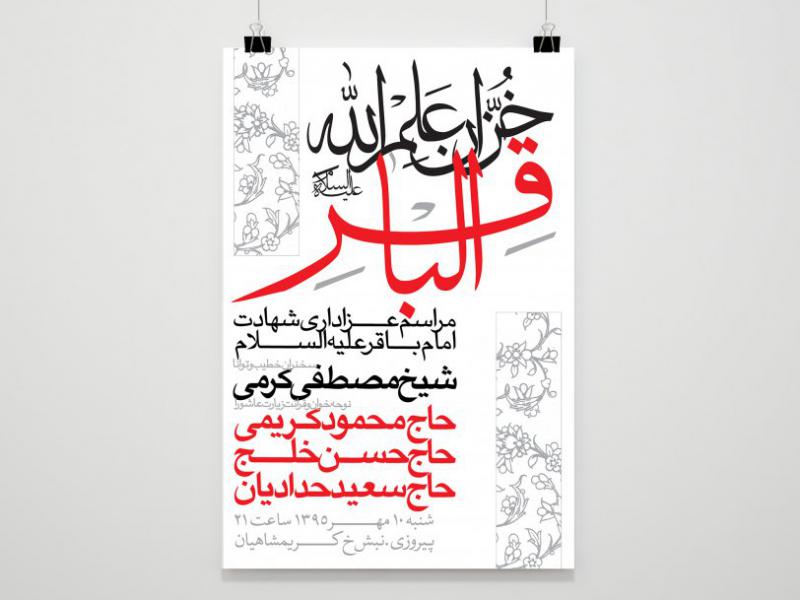 خُزّان عَلِم الله
الباقر
علیه السلام
مراسم عزاداری شهادت
امام باقر علیه السلام
سخنران خطیب و توانا
شیخ مصطفی کرمی
نوحه خوان و قرائت زیارت عاشورا
حاج محمود کریمی
حاج حسن خلج
حاج سعید حدادیان
شنبه ۱۰ مهر ۱۳۹۵ ساعت ۲۱
پیروزی . نبش خ کریمشاهیان